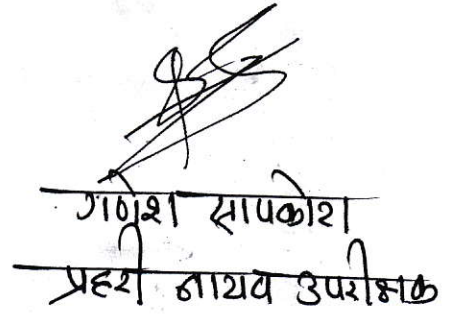 गणेश सापकोटा
प्रहरी नायव उपरीक्षक